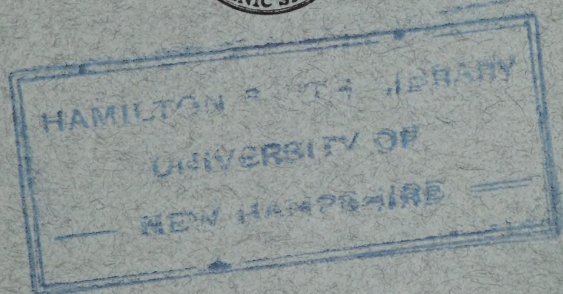 NIC S
HAMILTON SMITH LIBRARY
UNIVERSITY OF
NEW HAMPSHIRE